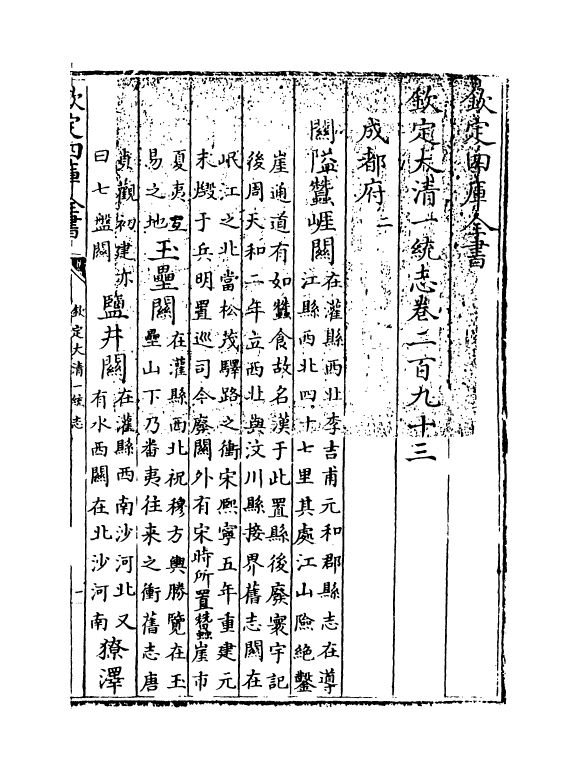 欽定四庫全書
欽定大清一統志卷二百九十三
成都府二
關隘蠶崕關在灌縣西北李吉甫元和郡縣志在導
江縣西北四十七里其處江山險絶鑿
崖通道有如蠶食故名漢于此置縣後廢寰宇記
後周天和二年立西北與汶川縣接界舊志關在
岷江之北當松茂驛路之衝宋熈寧五年重建元
末燬于兵明置巡司今廢關外有宋時所置蠶崖市
夏夷互
易之地
玉壘關在灌縣西北祝穆方輿勝覽在玉
壘山下乃番夷往來之衝舊志唐
貞觀初建亦
曰七盤關
鹽井關在灌縣西南沙河北又
有水西關在北沙河南
獠澤
欽定四庫全書
欽定大清一統志
一